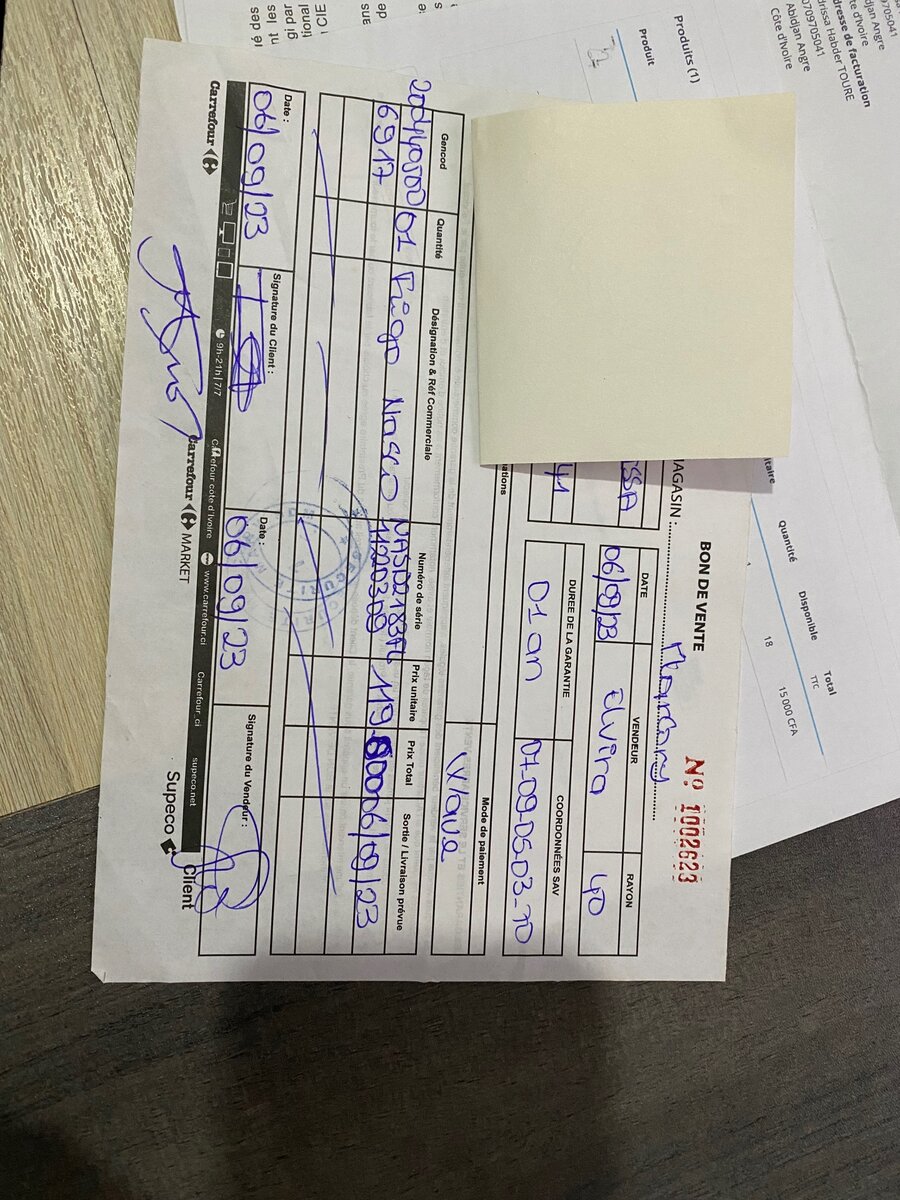 BON DE VENTE
Nº 1002623
MAGASIN : Marcory
DATE VENDEUR RAYON
06/09/23 Elvira 40
SSA
41
DUREE DE LA GARANTIE COORDONNÉES SAV
01 an 07.09.05.03_70
Mode de paiement
Wave
Gencod Quantité Désignation & Réf Commerciale Numéro de série Prix unitaire Prix Total Sortie / Livraison prévue
200440500 01 Frigo Nasco NASD2183FL 119 06/09/23
6917 11220309
Date : Signature du Client : Date : Signature du Vendeur :
06/09/23 06/09/23
Carrefour 9h-21h | 7/7 Carrefour cote d'Ivoire www.carrefour.ci Carrefour_ci supeco.net Client
Carrefour MARKET Supeco
Produits (1)
Produit
Quantité Disponible Total
TTC
18 15 000 CFA
0709705041
Abidjan Angre
Côte d'Ivoire
Adresse de facturation
Idrissa Habder TOURE
Abidjan Angre
Côte d'Ivoire